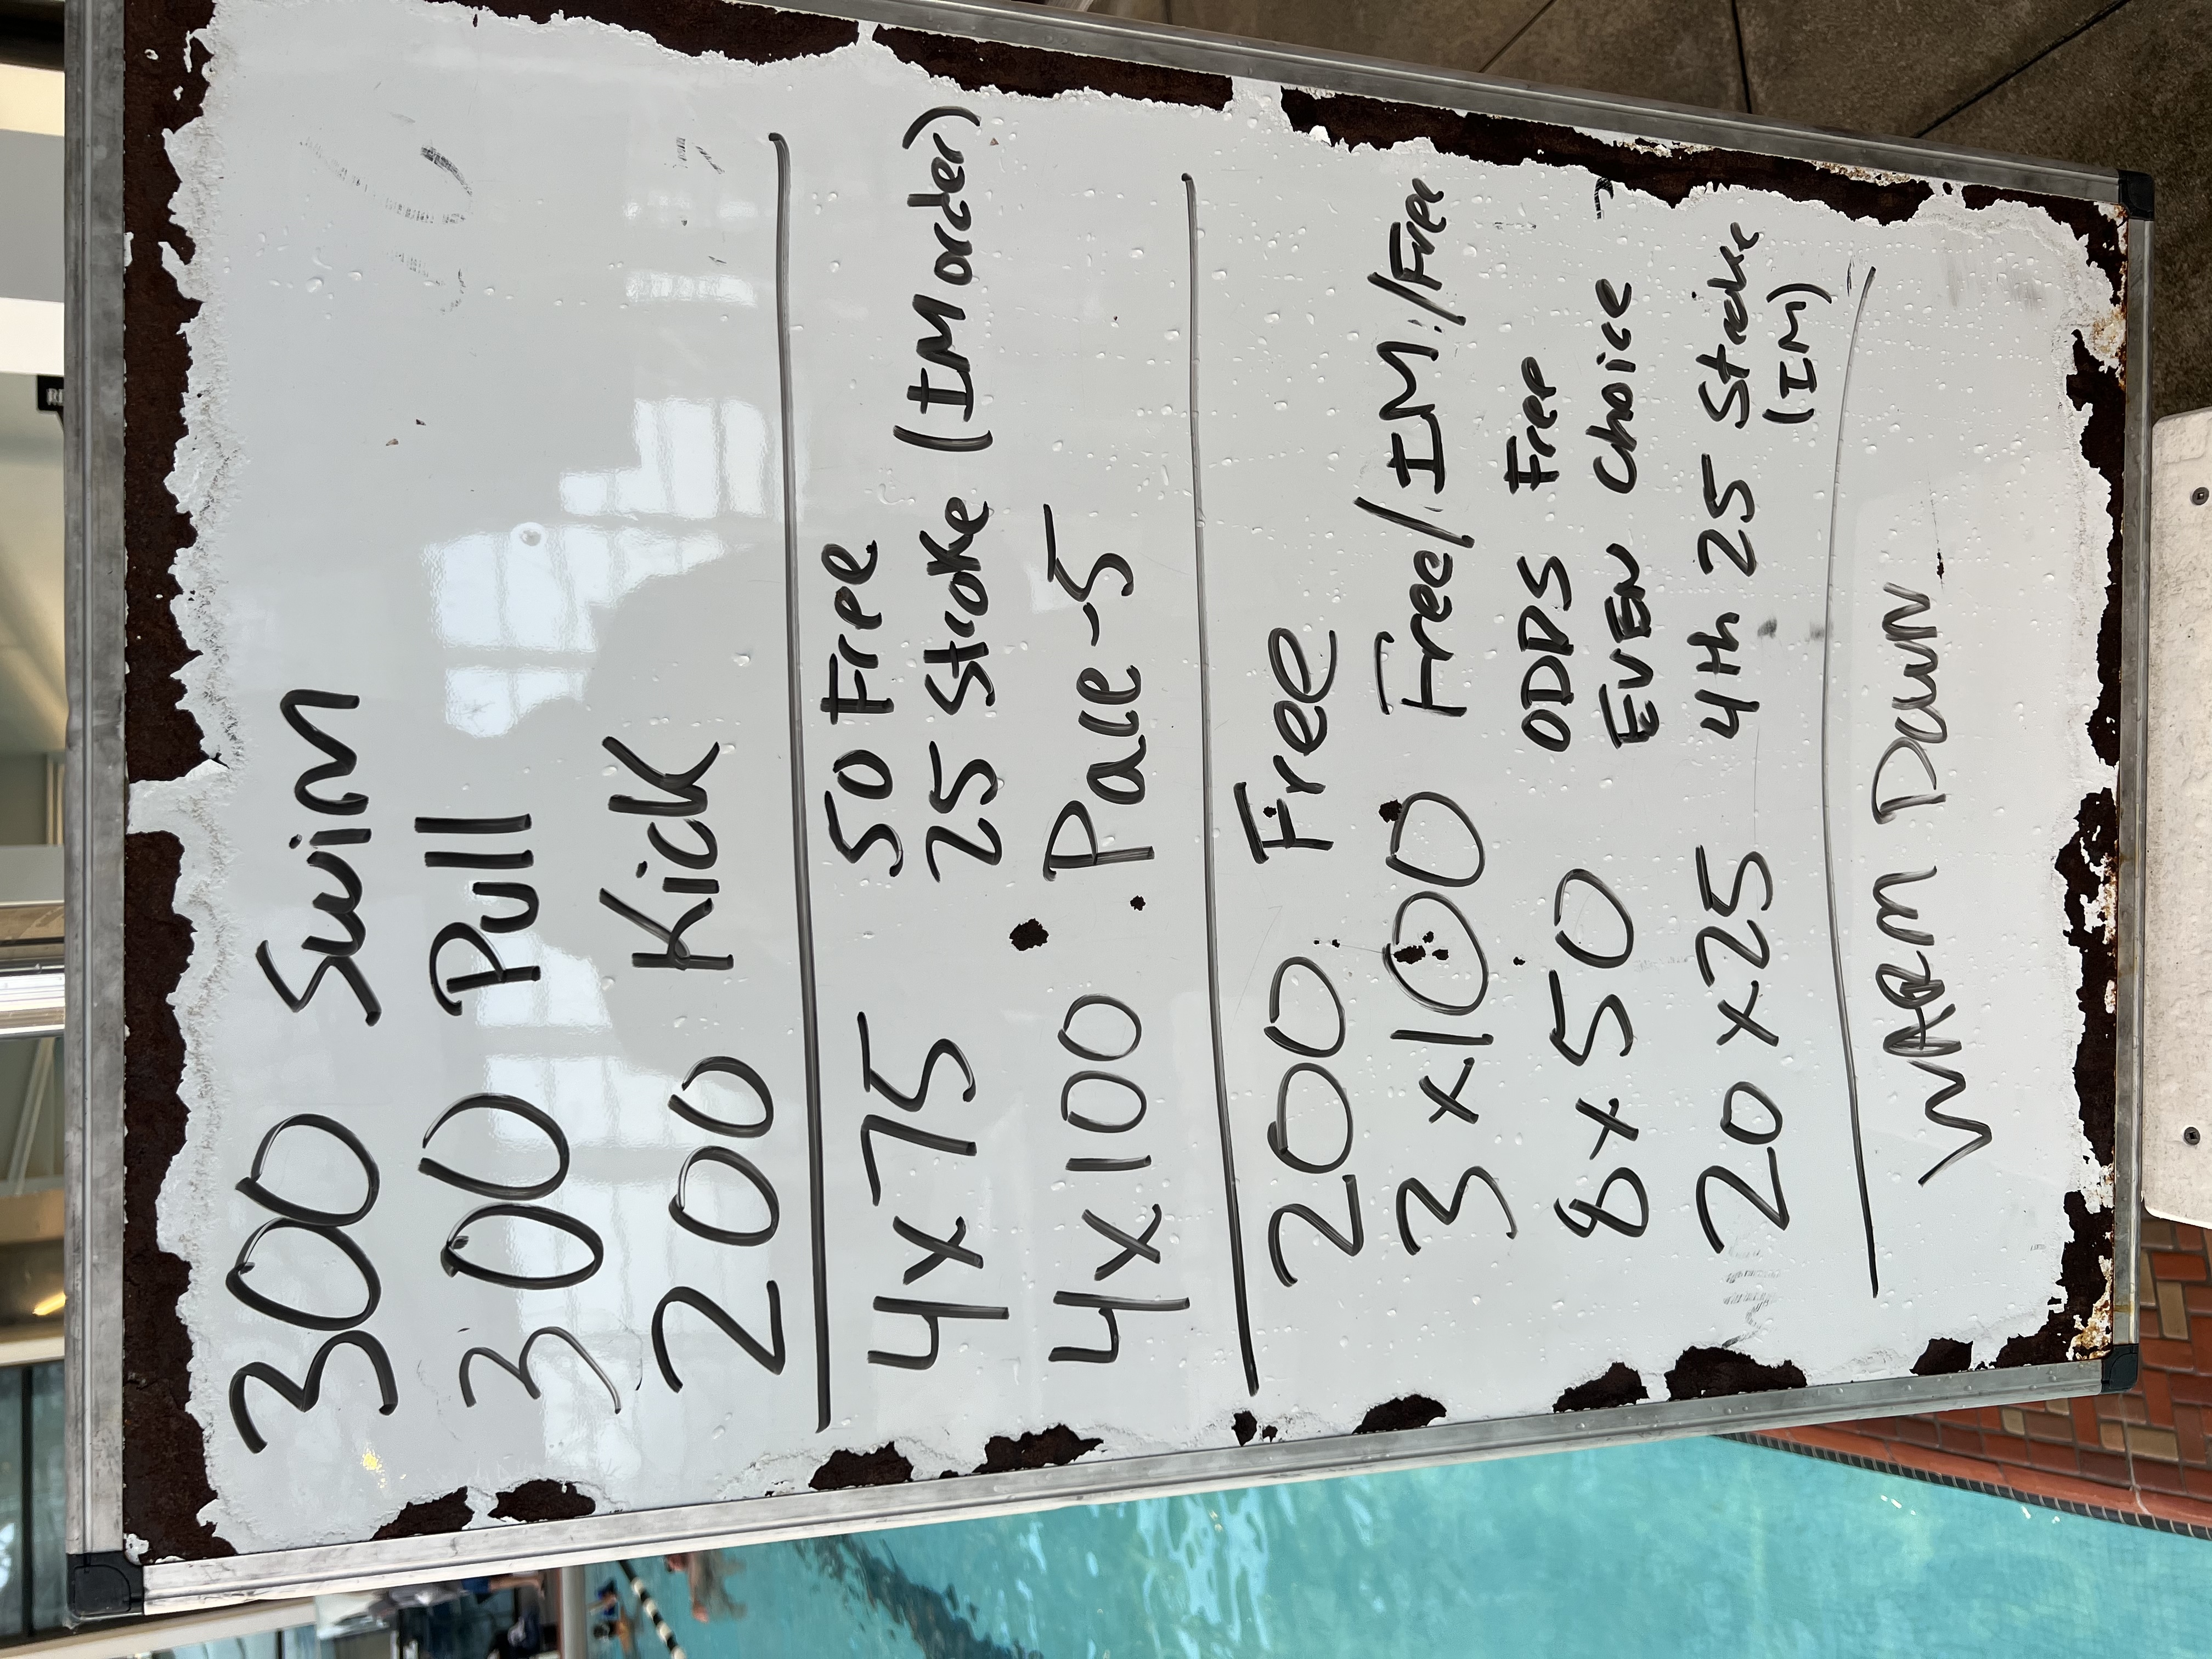 300 Swim
300 Pull
200 Kick
4x75 50 Free
25 Stroke (IM order)
4x100 Pace-5
200 Free
3x100 Free/IM/Free
8x50 ODDS Free
EVEN Choice
20x25 4th 25 Stroke
(IM)
WARM DOWN